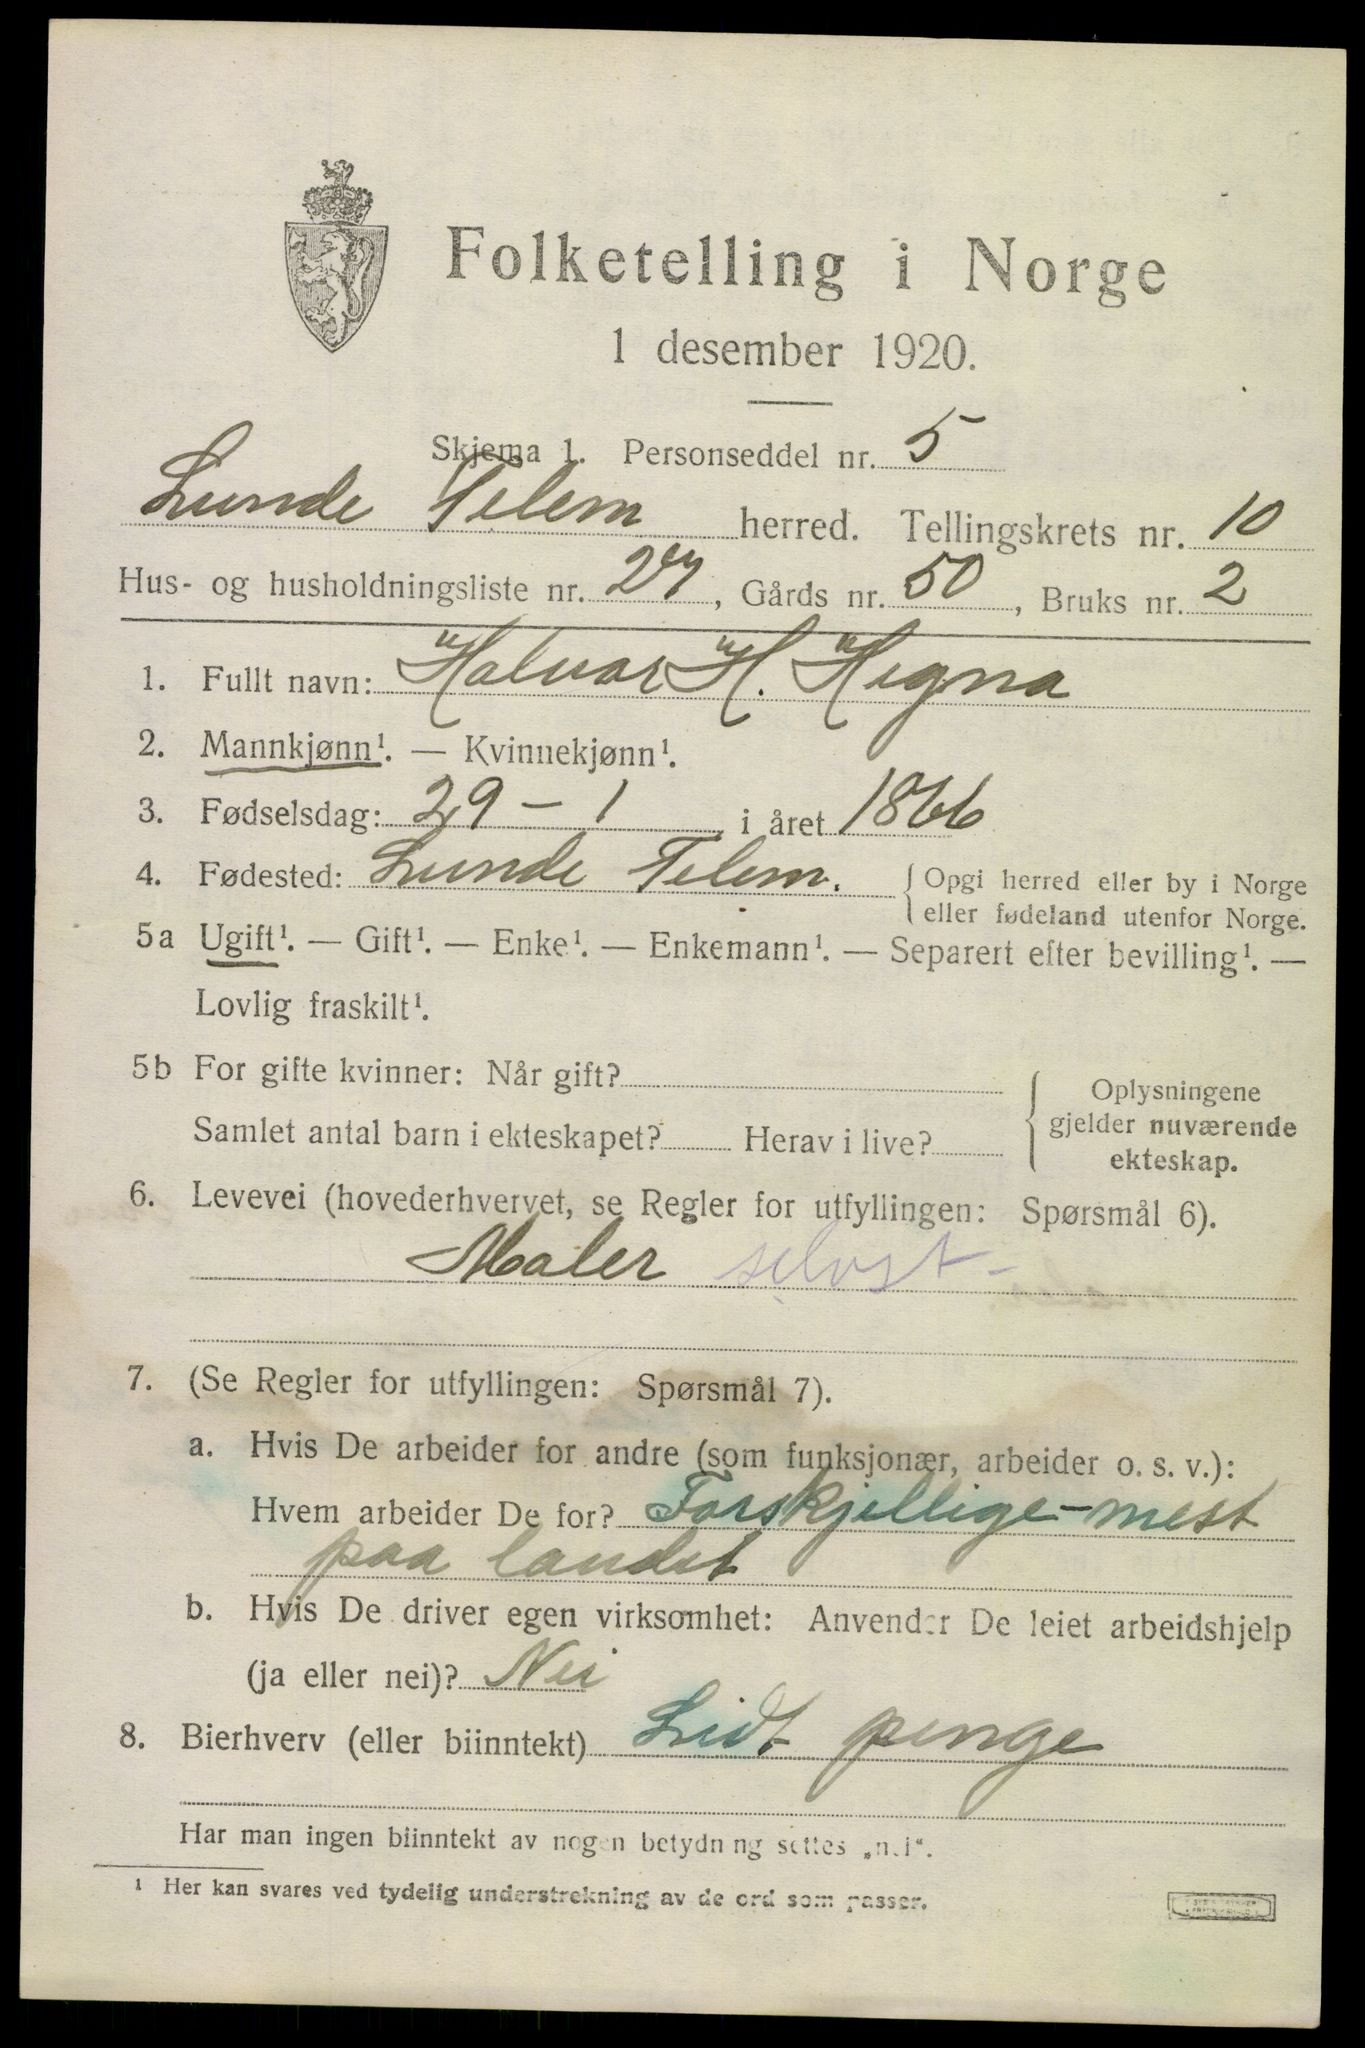 Folketelling i Norge
1 desember 1920.
Skjema 1. Personseddel nr. 5
Lunde Telem herred. Tellingskrets nr. 10
Hus- og husholdningsliste nr. 27, Gårds nr. 50, Bruks nr. 2
1. Fullt navn: Halvor H. Hegna
2. Mannkjønn¹. — Kvinnekjønn¹.
3. Fødselsdag: 29 – 1 i året 1866
4. Fødested: Lunde Telem. { Opgi herred eller by i Norge
eller fødeland utenfor Norge.
5a Ugift¹. — Gift¹. — Enke¹. — Enkemann¹. — Separert efter bevilling¹. —
Lovlig fraskilt¹.
5b For gifte kvinner: Når gift?
Samlet antal barn i ekteskapet? Herav i live?
{ Oplysningene
gjelder nuværende
ekteskap.
6. Levevei (hovederhvervet, se Regler for utfyllingen: Spørsmål 6).
Maler selvst-
7. (Se Regler for utfyllingen: Spørsmål 7).
a. Hvis De arbeider for andre (som funksjonær, arbeider o. s. v.):
Hvem arbeider De for? Forskjellige-mest
paa landet
b. Hvis De driver egen virksomhet: Anvender De leiet arbeidshjelp
(ja eller nei)? Nei
8. Bierhverv (eller biinntekt) Lidt penge
Har man ingen biinntekt av nogen betydning settes „nei“.
¹ Her kan svares ved tydelig understrekning av de ord som passer.